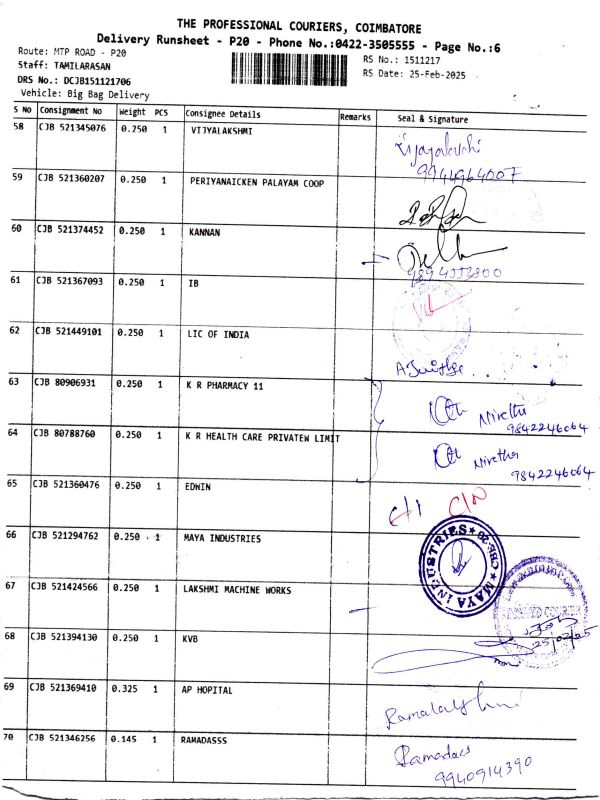 THE PROFESSIONAL COURIERS, COIMBATORE
Delivery Runsheet - P20 - Phone No.:0422-3505555 - Page No.:6
Route: MTP ROAD - P20
RS No.: 1511217
Staff: TAMILARASAN
RS Date: 25-Feb-2025
DRS No.: DCJB151121706
Vehicle: Big Bag Delivery
S No Consignment No Weight PCS Consignee Details Remarks Seal & Signature
58 CJB 521345076 0.250 1 VIJYALAKSHMI
Vijayalakshi
9944964007
59 CJB 521360207 0.250 1 PERIYANAICKEN PALAYAM COOP
60 CJB 521374452 0.250 1 KANNAN
61 CJB 521367093 0.250 1 IB
62 CJB 521449101 0.250 1 LIC OF INDIA
63 CJB 80906931 0.250 1 K R PHARMACY 11
Niretha
9842246064
64 CJB 80788760 0.250 1 K R HEALTH CARE PRIVATEW LIMIT
Niretha
9842246064
65 CJB 521360476 0.250 1 EDWIN
66 CJB 521294762 0.250 1 MAYA INDUSTRIES
MAYA INDUSTRIES ★ CBE-20 ★
67 CJB 521424566 0.250 1 LAKSHMI MACHINE WORKS
68 CJB 521394130 0.250 1 KVB
25/02/25
69 CJB 521369410 0.325 1 AP HOPITAL
70 CJB 521346256 0.145 1 RAMADASSS
Ramadass
9940914390